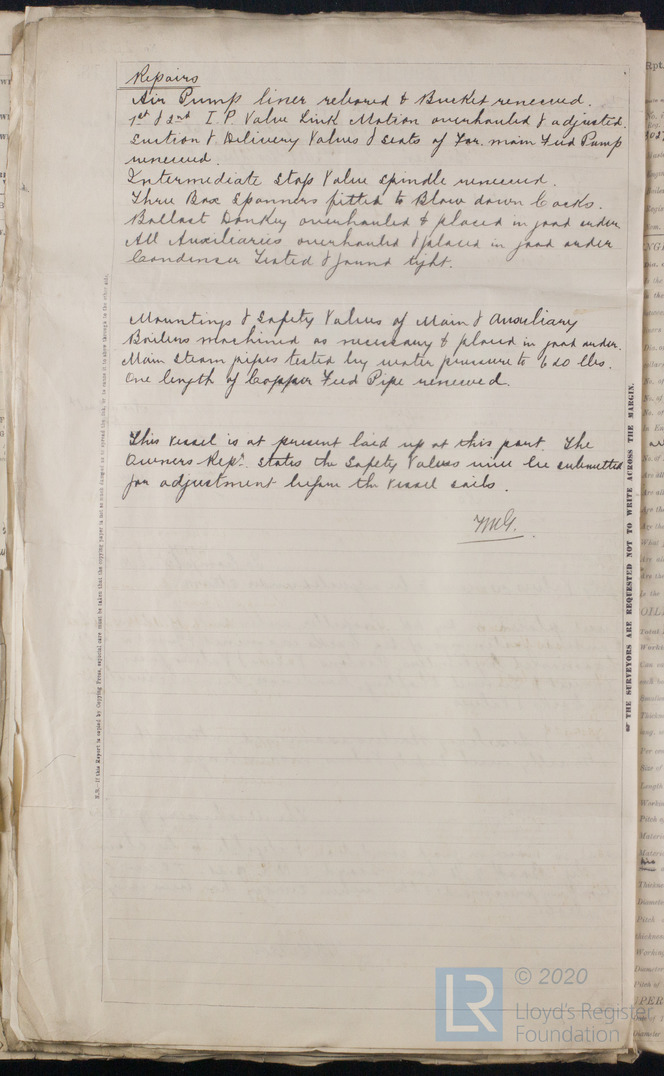 Repairs
Air Pump liner rebored & Bucket renewed.
1st & 2nd I.P. Valve Link Motion overhauled & adjusted.
Suction & Delivery Valves & seats of For. main Feed Pump
renewed.
Intermediate Stop Valve spindle renewed.
Three Box Spanners fitted to Blow down Cocks.
Ballast Donkey overhauled & placed in good order
All Auxiliaries overhauled & placed in good order
Condenser Tested & found tight.
Mountings & Safety Valves of Main & Auxiliary
Boilers machined as necessary & placed in good order.
Main Steam pipes tested by water pressure to 620 lbs.
One length of Copper Feed Pipe renewed.
This vessel is at present laid up at this port. The
Owners Repr. states the Safety Valves will be submitted
for adjustment before the vessel sails.
N.B.—If this Report is copied by Copying Press, especial care must be taken that the copying paper is not so much damped as to spread the ink, or to cause it to show through to the other side.
THE SURVEYORS ARE REQUESTED NOT TO WRITE ACROSS THE MARGIN.
Rpt.
LR
© 2020
Lloyd's Register
Foundation